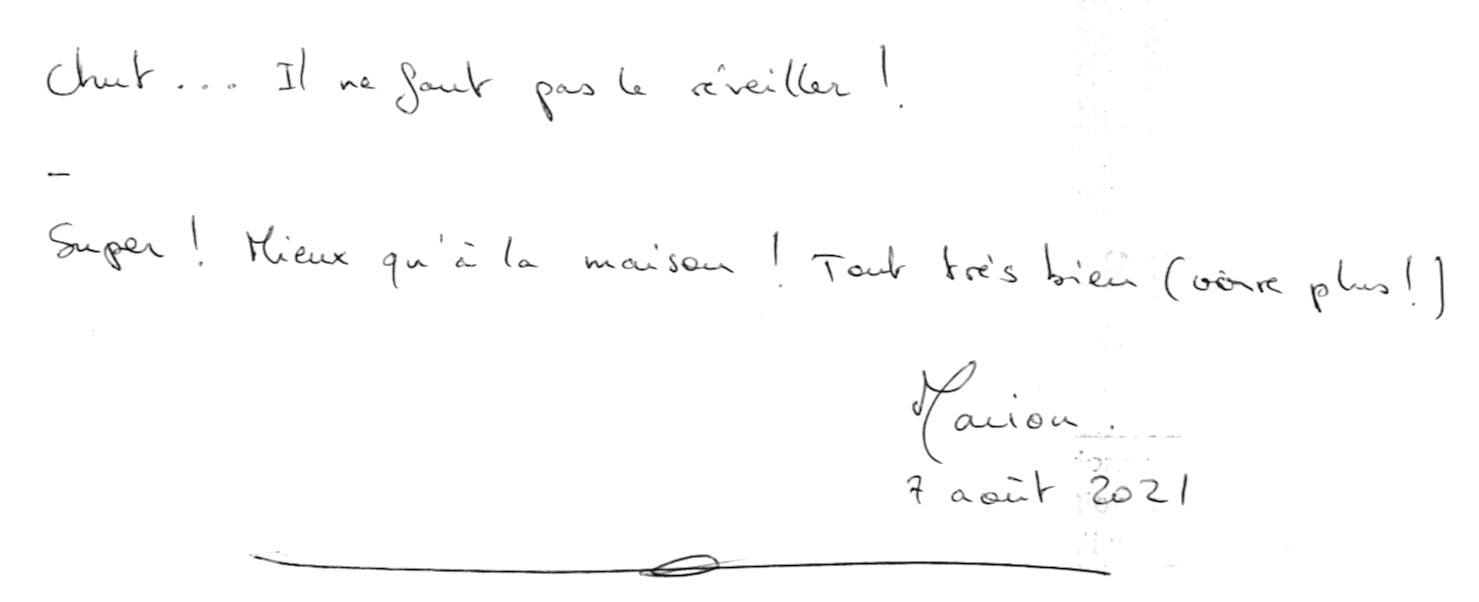 Chut... Il ne faut pas le réveiller !
-
Super ! Mieux qu'à la maison ! Tout très bien (voire plus !)
Marion.
7 août 2021